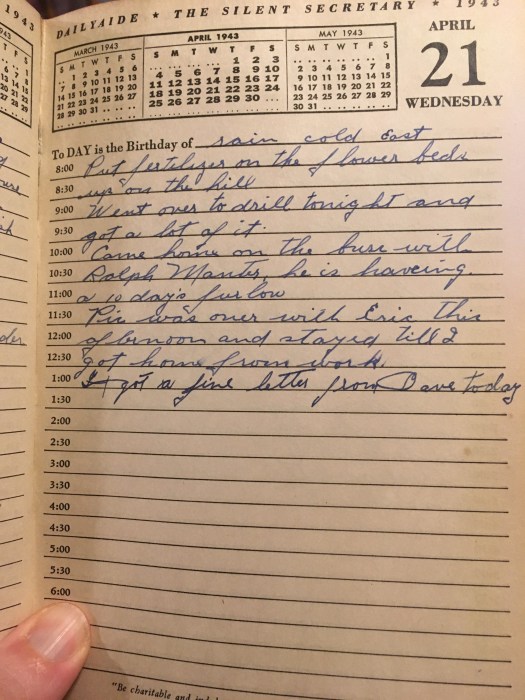 DAILYAIDE ★ THE SILENT SECRETARY ★ 1943
MARCH 1943
S M T W T F S
1 2 3 4 5 6
7 8 9 10 11 12 13
14 15 16 17 18 19 20
21 22 23 24 25 26 27
28 29 30 31
APRIL 1943
S M T W T F S
1 2 3
4 5 6 7 8 9 10
11 12 13 14 15 16 17
18 19 20 21 22 23 24
25 26 27 28 29 30
MAY 1943
S M T W T F S
1
2 3 4 5 6 7 8
9 10 11 12 13 14 15
16 17 18 19 20 21 22
23 24 25 26 27 28 29
30 31
APRIL
21
WEDNESDAY
To DAY is the Birthday of rain cold East
8:00 Put fertilizer on the flower beds
8:30 up on the hill
9:00 Went over to drill tonight and
9:30 got a lot of it.
10:00 Came home on the buse with
10:30 Ralph Manter, he is haveing
11:00 a 10 day's furlow
11:30 Pic was over with Eric this
12:00 afternoon and stayed till I
12:30 got home from work.
1:00 I got a fine letter from Dave today
1:30
2:00
2:30
3:00
3:30
4:00
4:30
5:00
5:30
6:00
"Be charitable and